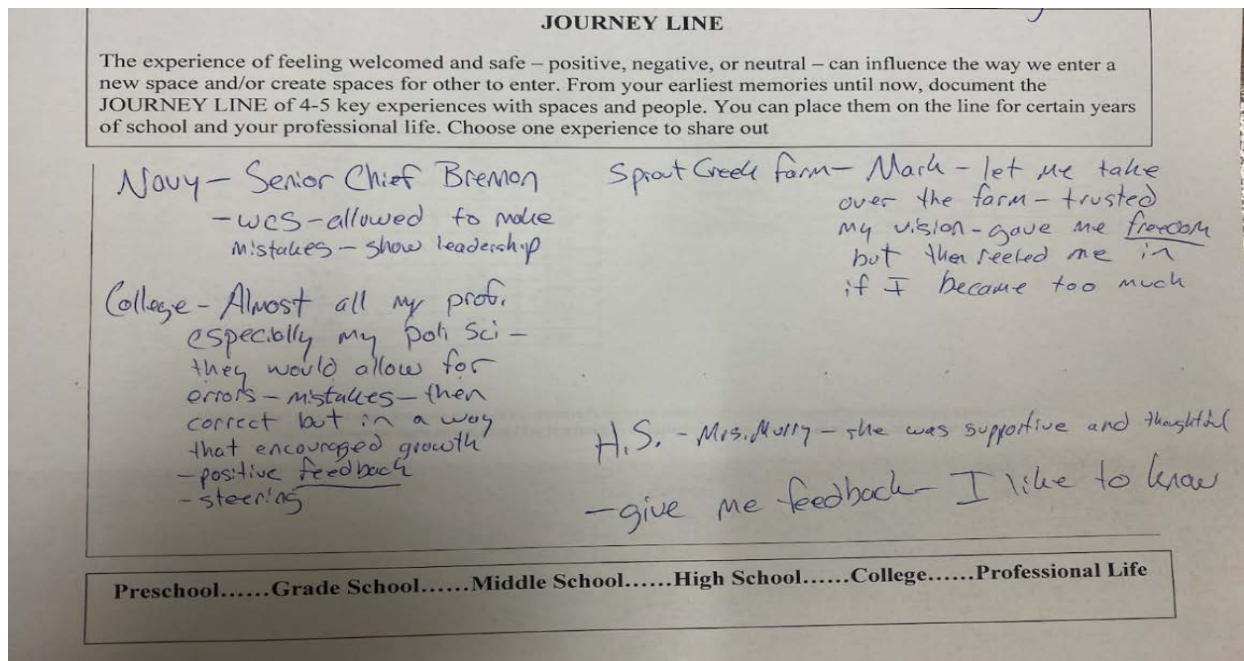 JOURNEY LINE
The experience of feeling welcomed and safe – positive, negative, or neutral – can influence the way we enter a
new space and/or create spaces for other to enter. From your earliest memories until now, document the
JOURNEY LINE of 4-5 key experiences with spaces and people. You can place them on the line for certain years
of school and your professional life. Choose one experience to share out
Navy – Senior Chief Bremon
- wcs - allowed to make
mistakes – show leadership
College - Almost all my prof.
especially my poli sci –
they would allow for
errors – mistakes – then
correct but in a way
that encouraged growth
- positive feedback
- steering
Sprout Creek farm – Mark – let me take
over the farm – trusted
my vision - gave me freedom
but then reeled me in
if I became too much
H.S. - Mrs. – she was supportive and thoughtful
- give me feedback – I like to know
Preschool......Grade School......Middle School......High School......College......Professional Life